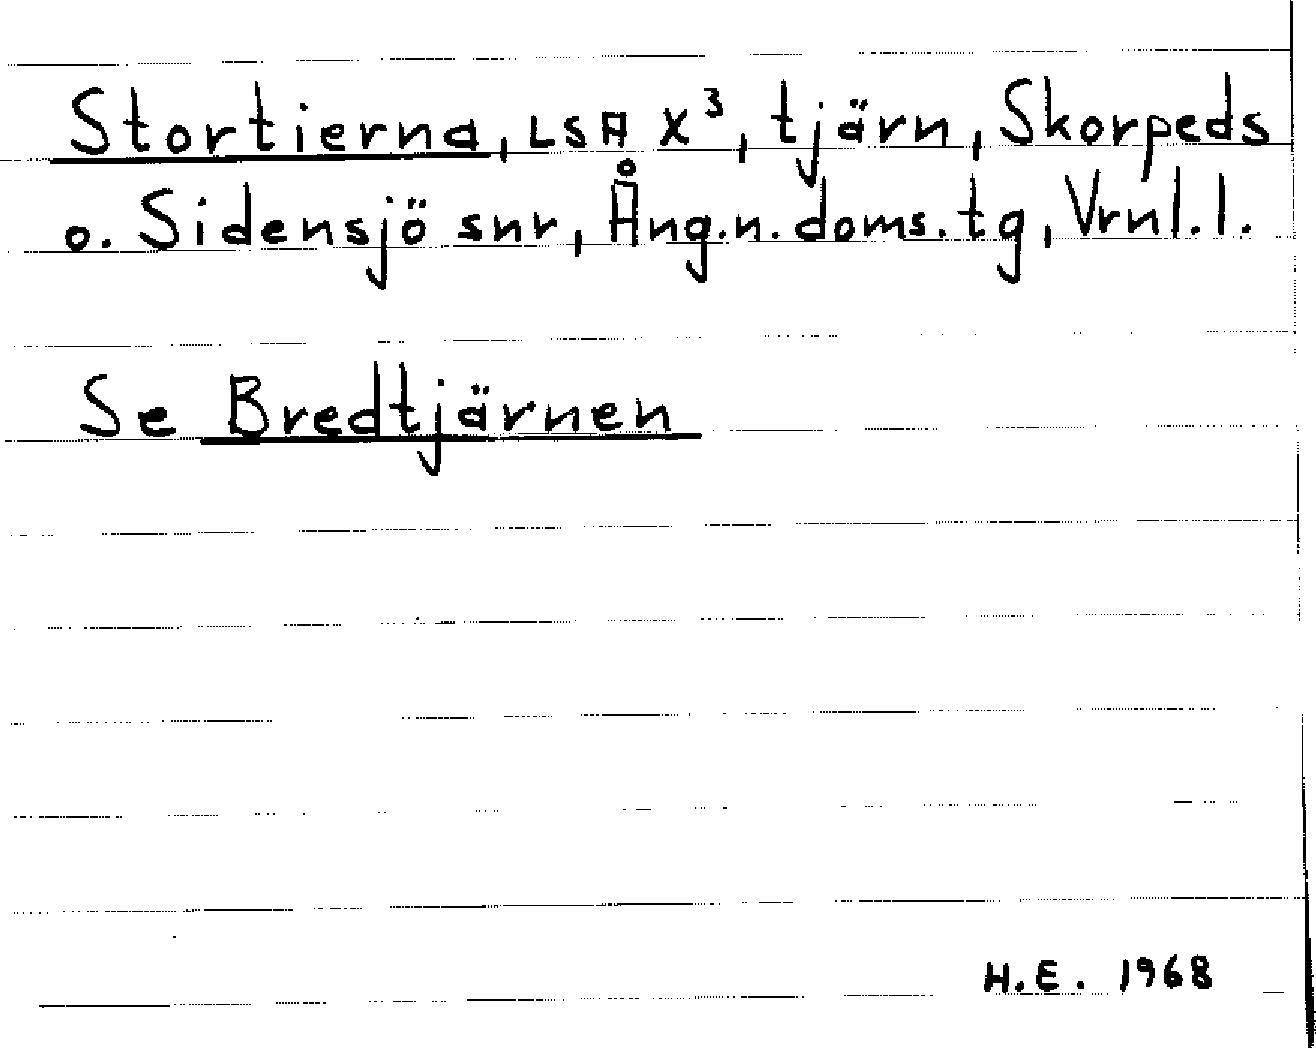 Stortierna, LSA X³, tjärn, Skorpeds
o. Sidensjö snr, Ång.n. doms. tg, Vrnl. l.
Se Bredtjärnen
H.E. 1968